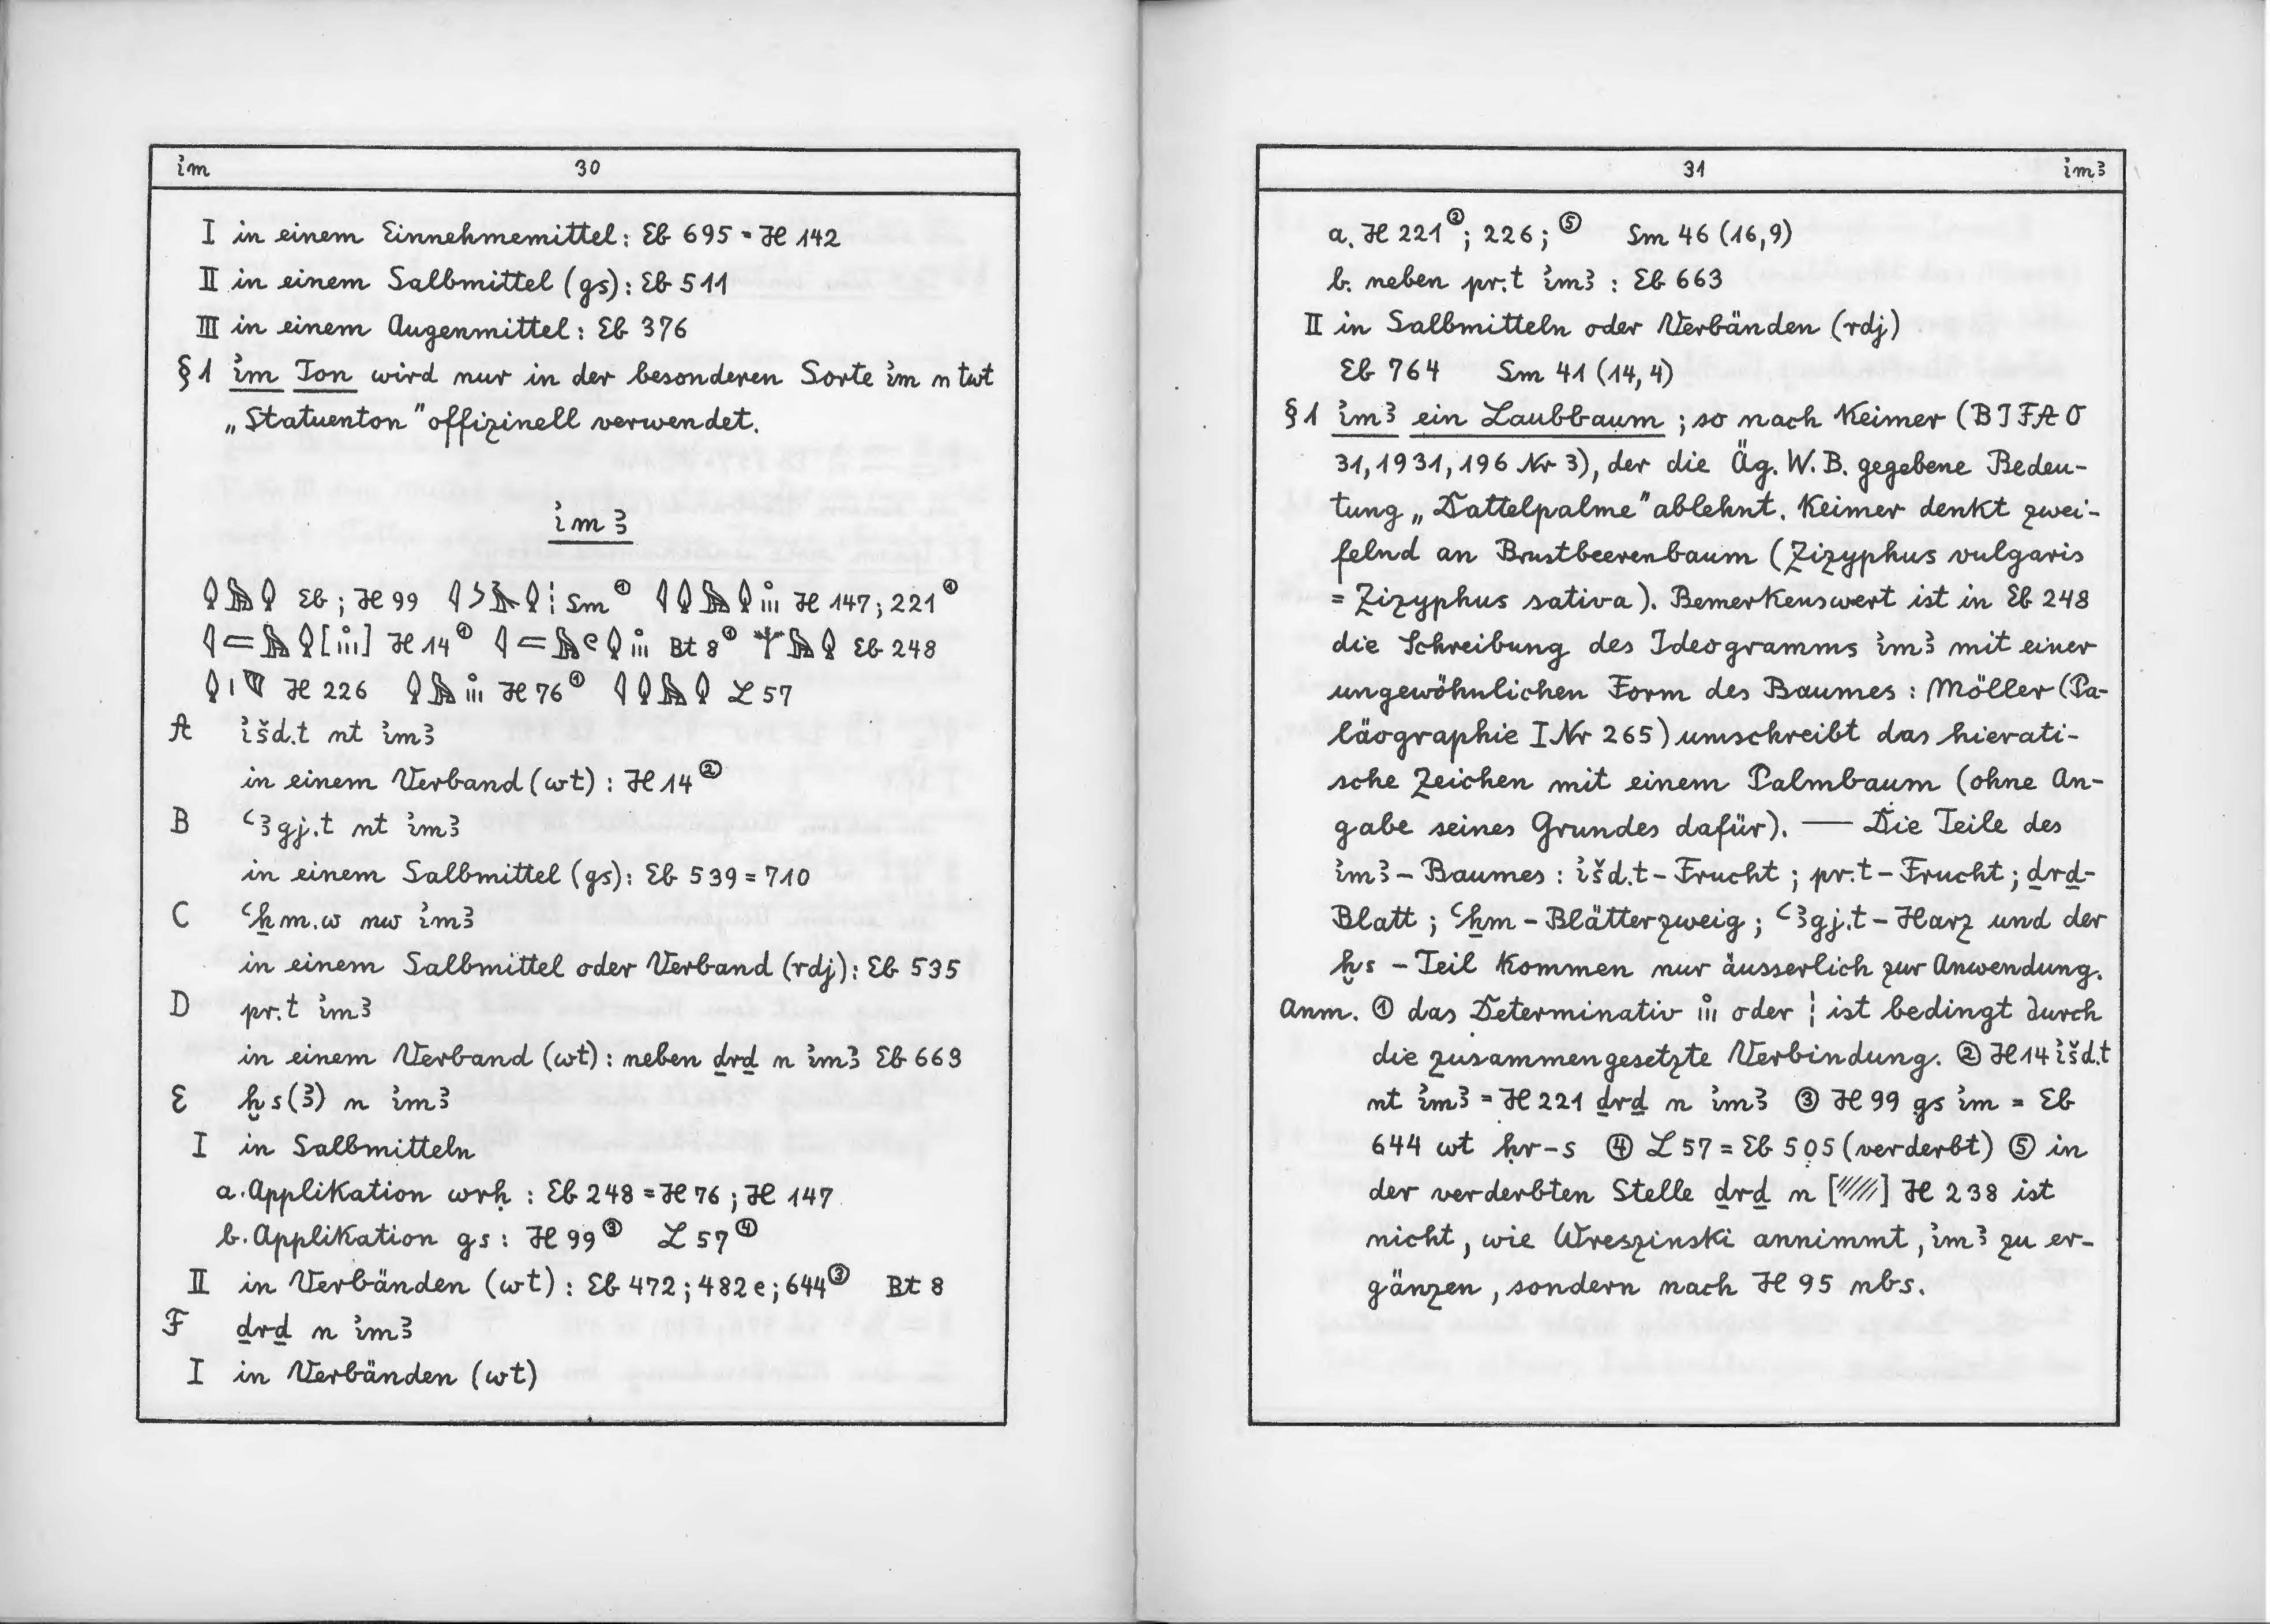 i͗m 30
I in einem Einnehmemittel: Eb 695 = H 142
II in einem Salbmittel (gs): Eb 511
III in einem Augenmittel: Eb 376
§1 i͗m Ton wird nur in der besonderen Sorte i͗m n twt
„Statuenton" offizinell verwendet.
i͗mꜣ
Eb; H 99 Sm ① H 147; 221 ①
H 14 ① Bt 8 ① Eb 248
H 226 H 76 ① L 57
A i͗šd.t nt i͗mꜣ
in einem Verband (wt): H 14 ②
B ꜥꜣgj.t nt i͗mꜣ
in einem Salbmittel (gs): Eb 539 = 710
C ꜥẖm.w nw i͗mꜣ
in einem Salbmittel oder Verband (rdj): Eb 535
D pr.t i͗mꜣ
in einem Verband (wt): neben ḏrḏ n i͗mꜣ Eb 663
E ḫs(ꜣ) n i͗mꜣ
I in Salbmitteln
a. Applikation wrḥ: Eb 248 = H 76; H 147
b. Applikation gs: H 99 ③ L 57 ④
II in Verbänden (wt): Eb 472; 482e; 644 ③ Bt 8
F ḏrḏ n i͗mꜣ
I in Verbänden (wt)
31 i͗mꜣ
a. H 221 ②; 226; ⑤ Sm 46 (16,9)
b. neben pr.t i͗mꜣ: Eb 663
II in Salbmitteln oder Verbänden (rdj)
Eb 764 Sm 41 (14,4)
§1 i͗mꜣ ein Laubbaum; so nach Keimer (BIFAO
31, 1931, 196 Nr 3), der die Äg. W.B. gegebene Bedeu-
tung „Dattelpalme" ablehnt. Keimer denkt zwei-
felnd an Brustbeerenbaum (Zizyphus vulgaris
= Zizyphus sativa). Bemerkenswert ist in Eb 248
die Schreibung des Ideogramms i͗mꜣ mit einer
ungewöhnlichen Form des Baumes: Möller (Pa-
läographie I Nr 265) umschreibt das hierati-
sche Zeichen mit einem Palmbaum (ohne An-
gabe seines Grundes dafür). — Die Teile des
i͗mꜣ-Baumes: i͗šd.t-Frucht; pr.t-Frucht; ḏrḏ-
Blatt; ꜥẖm-Blätterzweig; ꜥꜣgj.t-Harz und der
ḫs-Teil kommen nur äusserlich zur Anwendung.
Anm. ① das Determinativ oder ist bedingt durch
die zusammengesetzte Verbindung. ② H 14 i͗šd.t
nt i͗mꜣ = H 221 ḏrḏ n i͗mꜣ ③ H 99 gs i͗m = Eb
644 wt ḥr-s ④ L 57 = Eb 505 (verderbt) ⑤ in
der verderbten Stelle ḏrḏ n [/////] H 238 ist
nicht, wie Wreszinski annimmt, i͗mꜣ zu er-
gänzen, sondern nach H 95 nbs.